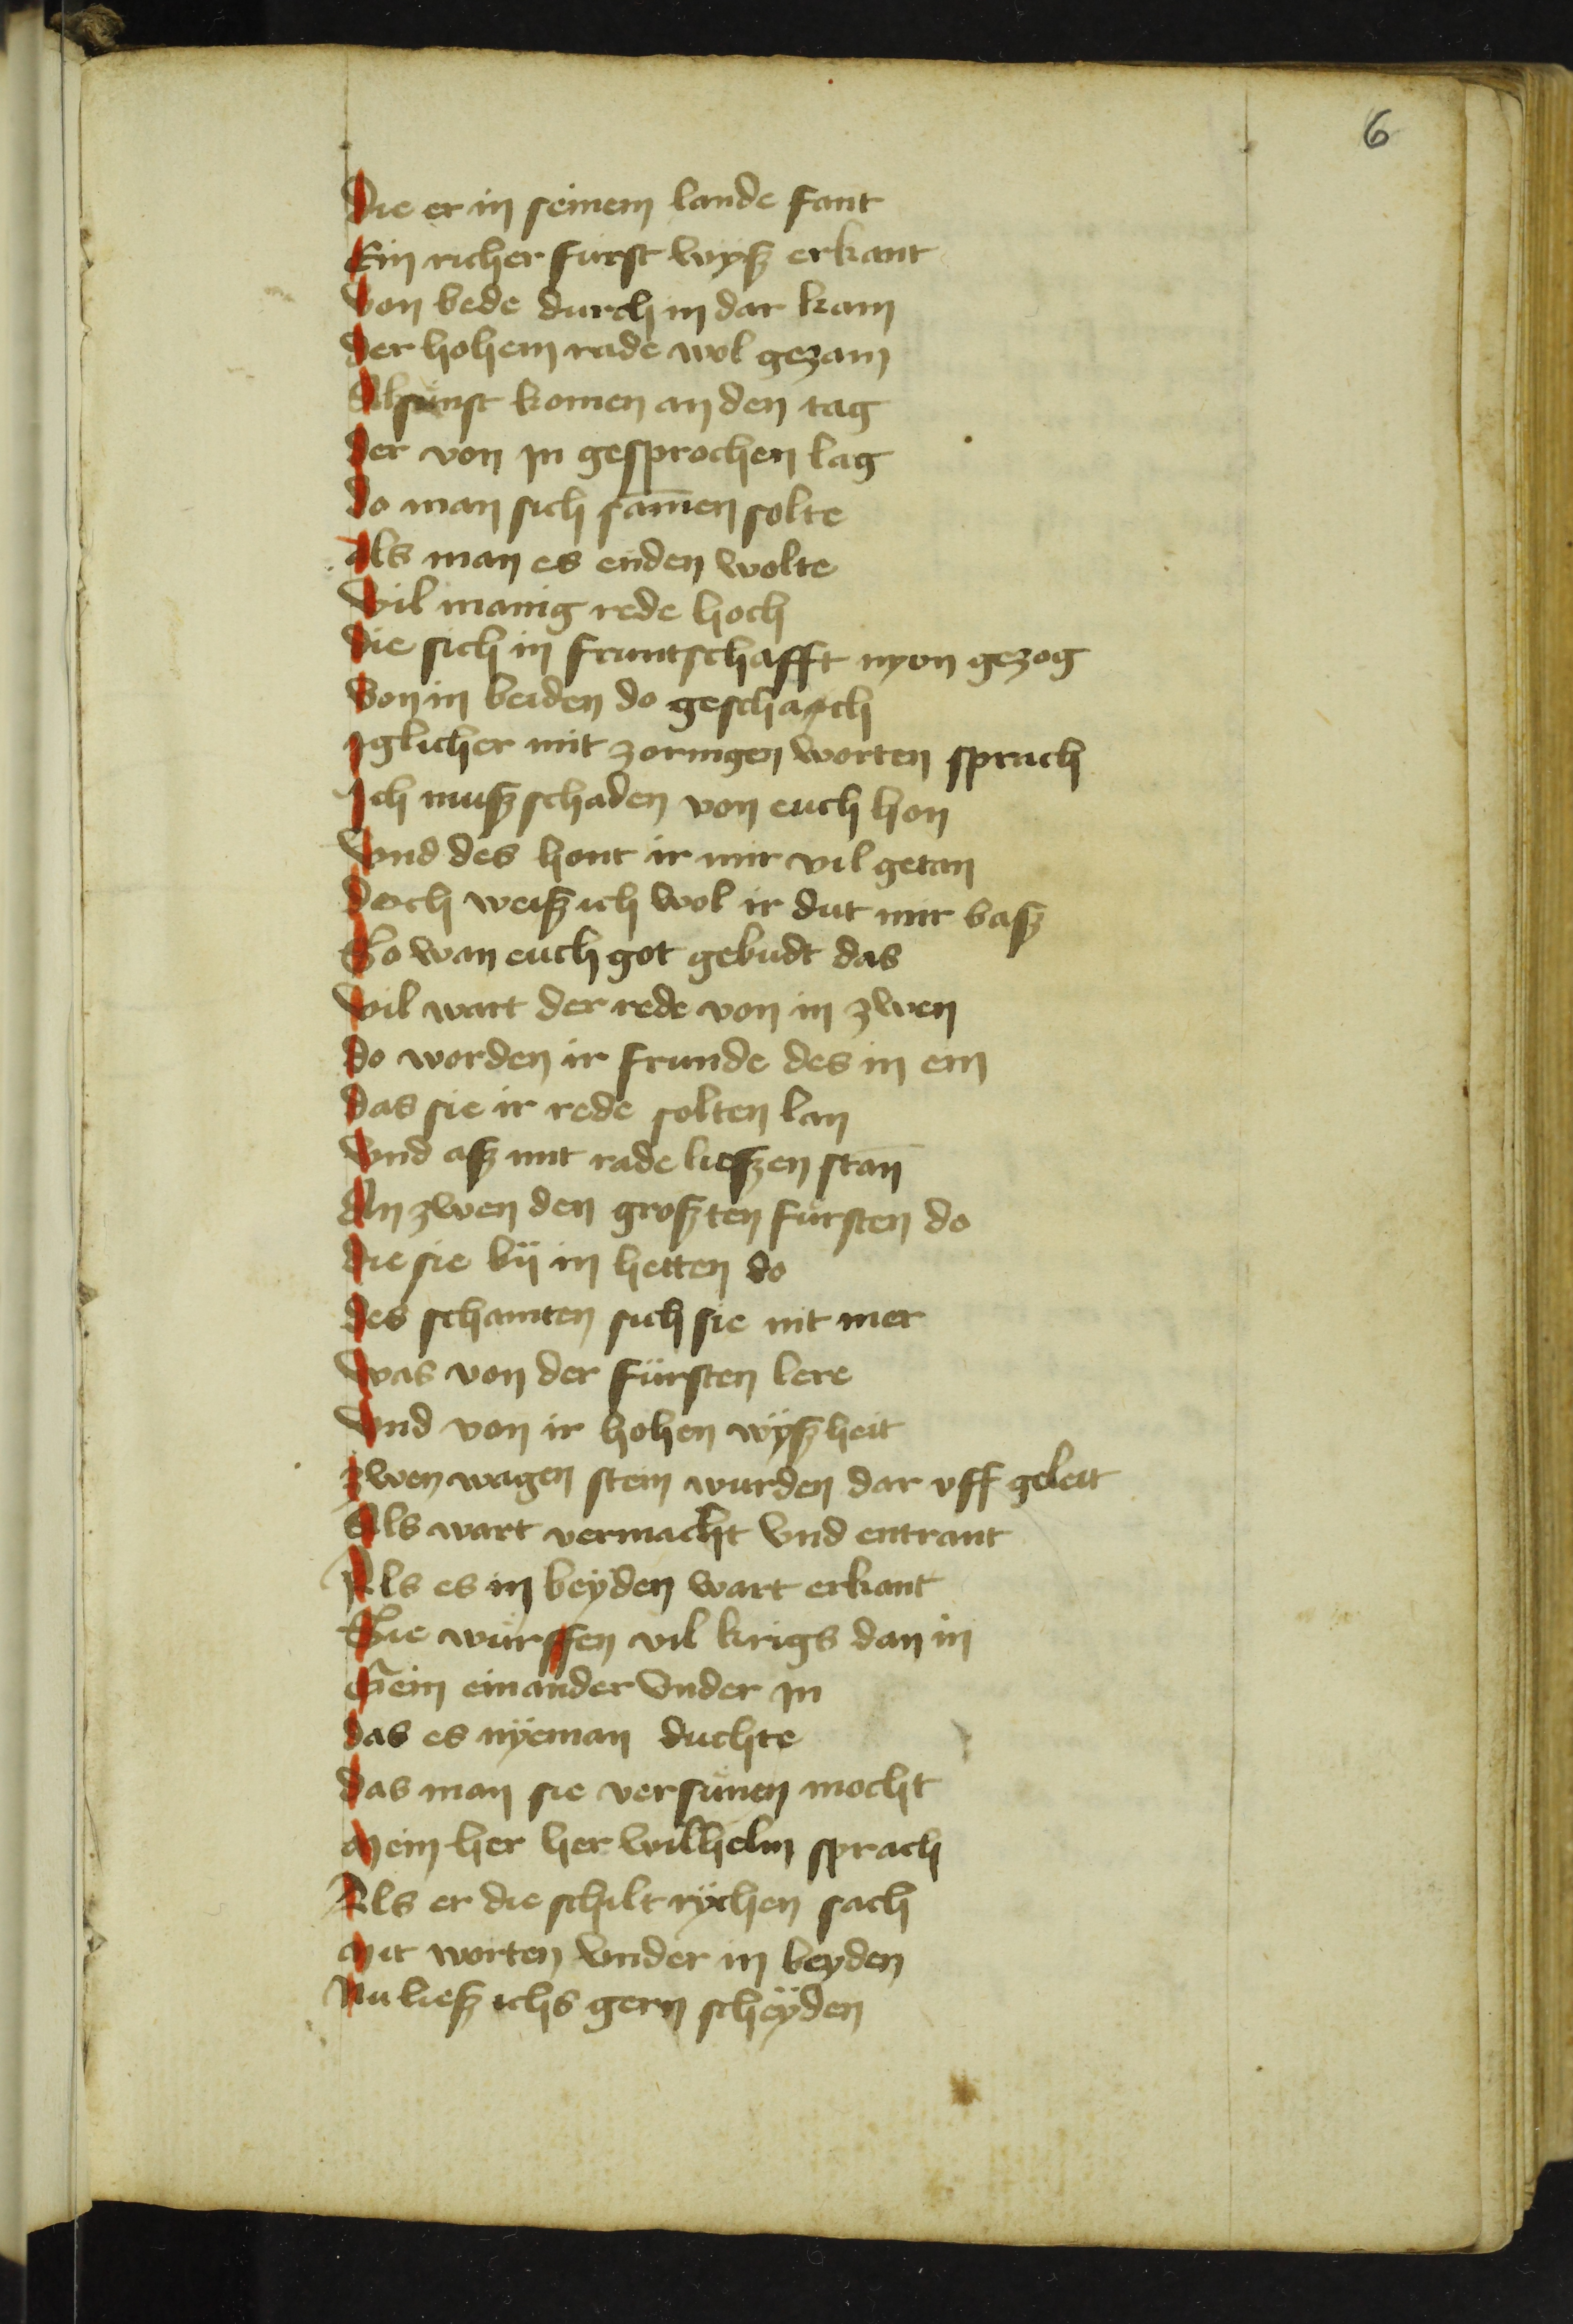 6
Die er in seinem lande fant
Ein richer fürst wyß erkant
Von bede durch in dar kam
Der hohem rade wol gezam
Alsünst komen an den tag
Der von in gesprochen lag
Do man sich samen solte
Als man es enden wolte
Vil manig rede hoch
Die sich in fruntschafft nyon gezog
Von in beiden do geschach
Iglicher mit zornigen worten sprach
Ich muß schaden von euch hon
Vnd des hont ir mir vil getan
Doch weiß ich wol ir dut mir baß
So wan euch got gebudt das
Vil wart der rede von in zwen
Do worden ir frunde des in ein
Das sie ir rede solten lan
Vnd aß mit rade lieszen stan
An zwen den großten fürsten do
Die sie bÿ in hetten do
Des schamten sich sie nit mer
Was von der fürsten lere
Vnd von ir hohen wÿßheit
Zwen wagen stein wurden dar vff geleit
Als wart vermacht vnd entrant
Als es in beÿden wart erkant
Sie würffen vil krigs dan in
Gein einander vnder in
Das es nÿeman duchte
Das man sie versünen mocht
Mein her her wilhelm sprach
Als er die schilt rÿchen sach
Mit worten vnder in beyden
Nu ließ ichs gern scheÿden